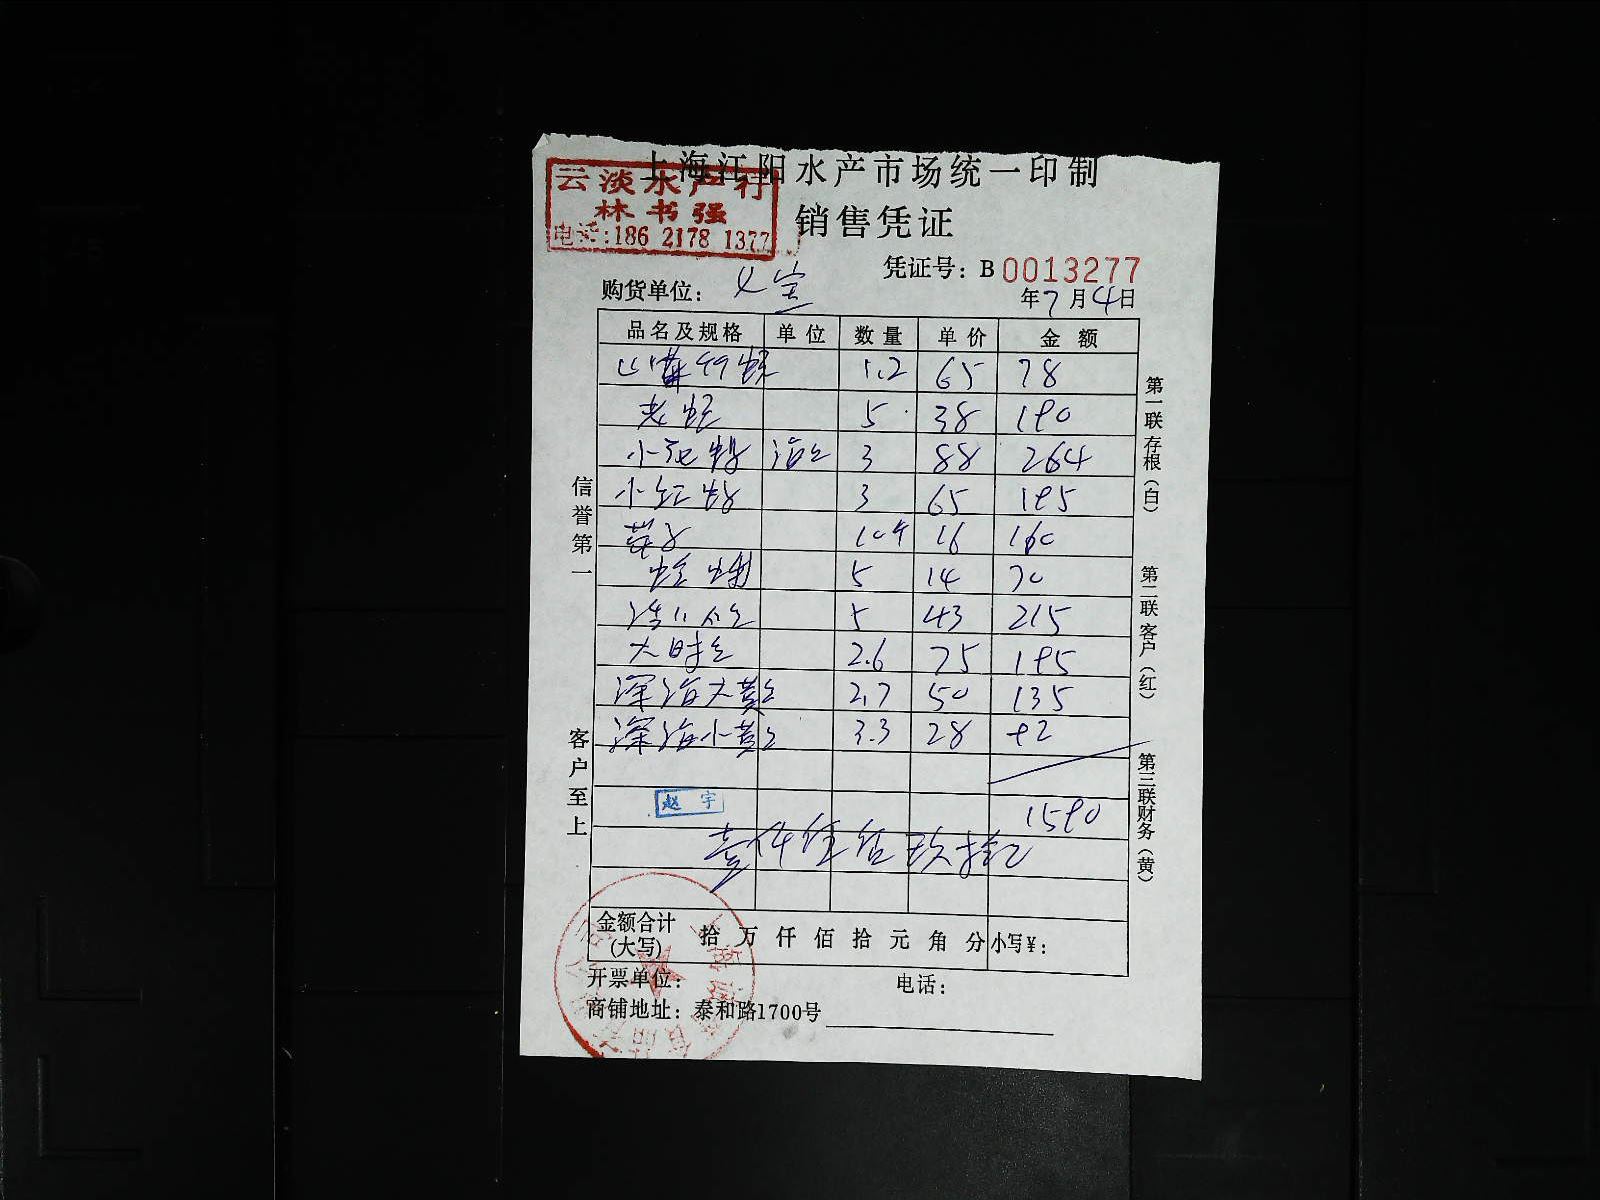 上海江阳水产市场统一印制
云淡水产行
林书强
电话:186 2178 1377
销售凭证
凭证号: B 0013277
购货单位:
年7月4日
品名及规格 单位 数量 单价 金额
1.2 65 78
老蛏 5 38 190
3 88 264
小红虾 3 65 195
10斤 16 160
5 14 70
5 43 215
2.6 75 195
深海大黄 2.7 50 135
深海小黄 3.3 28 92
赵宇
1590
壹仟伍佰玖拾元
金额合计(大写) 拾 万 仟 佰 拾 元 角 分 小写¥:
开票单位: 电话:
商铺地址: 泰和路1700号
信誉第一
客户至上
第一联存根(白)
第二联客户(红)
第三联财务(黄)